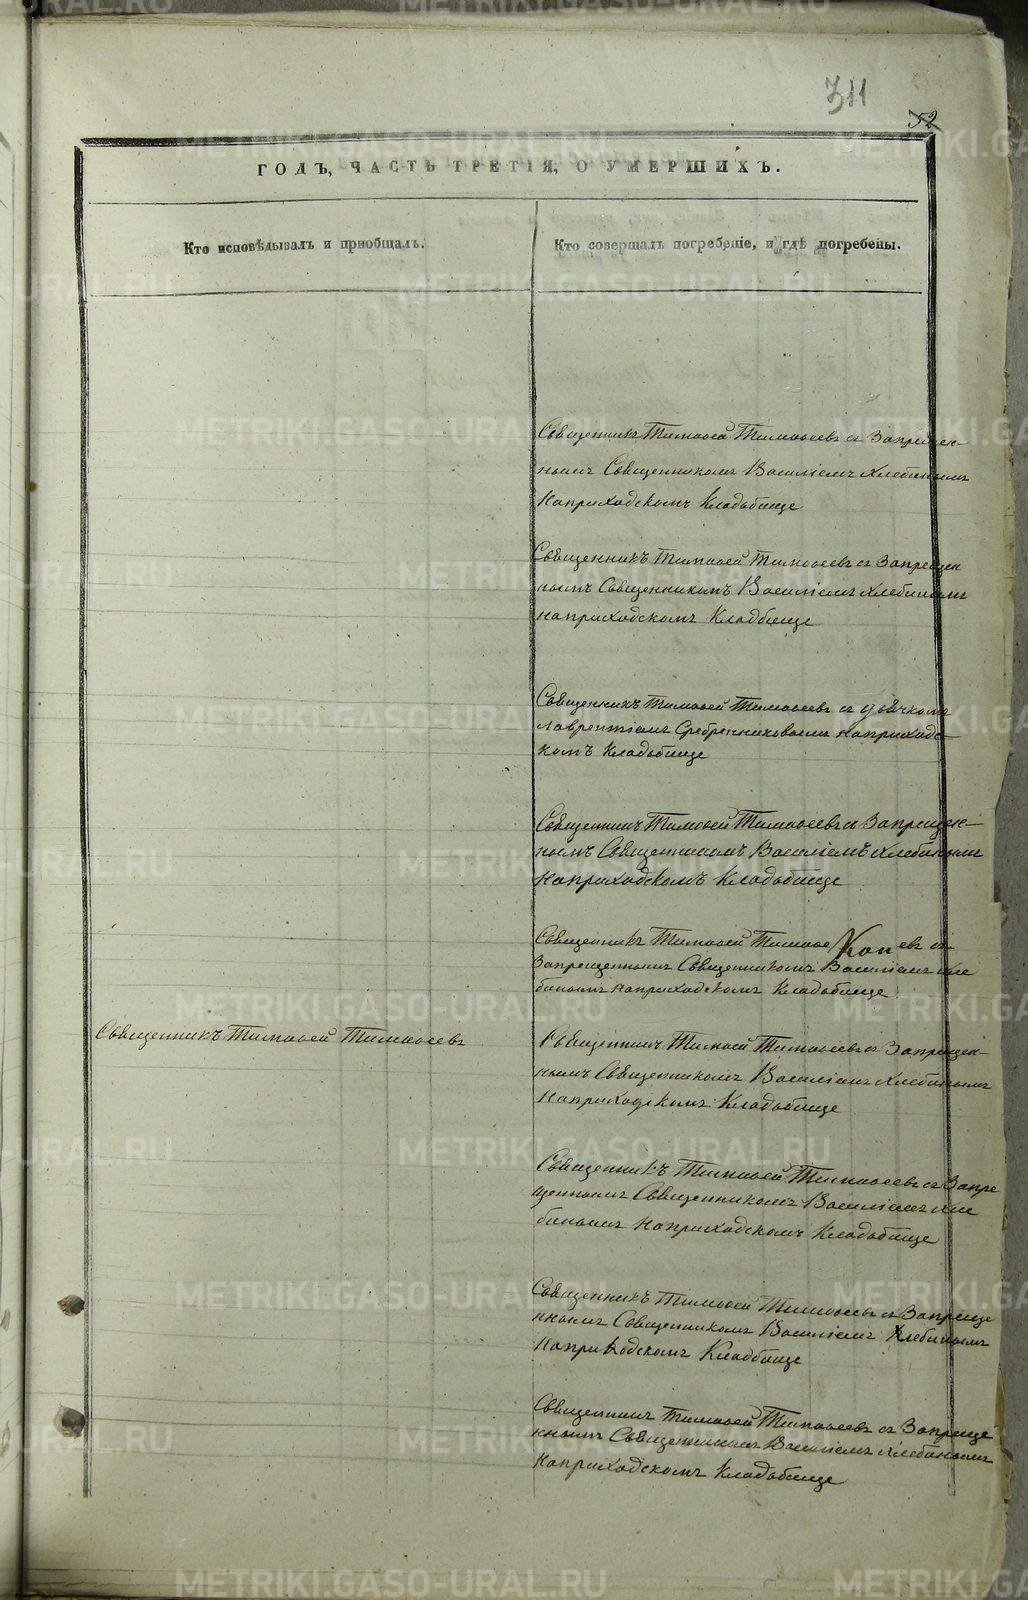 311
52
ГОДЪ, ЧАСТЬ ТРЕТІЯ, О УМЕРШИХЪ.
Кто исповѣдывалъ и пріобщалъ.
Кто совершалъ погребеніе, и гдѣ погребены.
Священникъ Тимофей Тимофеевъ съ Запрещен-
нымъ Священникомъ Василіемъ Хлебинымъ
Наприходскомъ Кладьбище
Священникъ Тимофей Тимофеевъ съ Запрещен
нымъ Священникомъ Василіемъ Хлебинымъ
наприходскомъ Кладбище
Священникъ Тимофей Тимофеевъ съ дьячкомъ
Лаврентіемъ Сребренниковымъ наприход-
скомъ Кладьбище
Священникъ Тимофей Тимофеевъ съ Запрещен-
нымъ Священникомъ Василіемъ Хлебинымъ
Наприходскомъ Кладьбище
Священникъ Тимофей Тимофеевъ съ
Запрещеннымъ Священникомъ Василіемъ Хле
бинымъ наприходскомъ Кладьбище
Священникъ Тимофей Тимофеевъ
Священникъ Тимофей Тимофеевъ съ Запрещен-
нымъ Священникомъ Василіемъ Хлебинымъ
Наприходскомъ Кладьбище
Священникъ Тимофей Тимофеевъ съ Запре
щеннымъ Священникомъ Василіемъ Хле
бинымъ Наприходскомъ Кладьбище
Священникъ Тимофей Тимофеевъ съ Запреще
ннымъ Священникомъ Василіемъ Хлебинымъ
Наприходскомъ Кладбище
Священникъ Тимофей Тимофеевъ съ Запреще
ннымъ Священникомъ Василіемъ Хлебинымъ
Наприходскомъ Кладьбище
METRIKI.GASO-URAL.RU